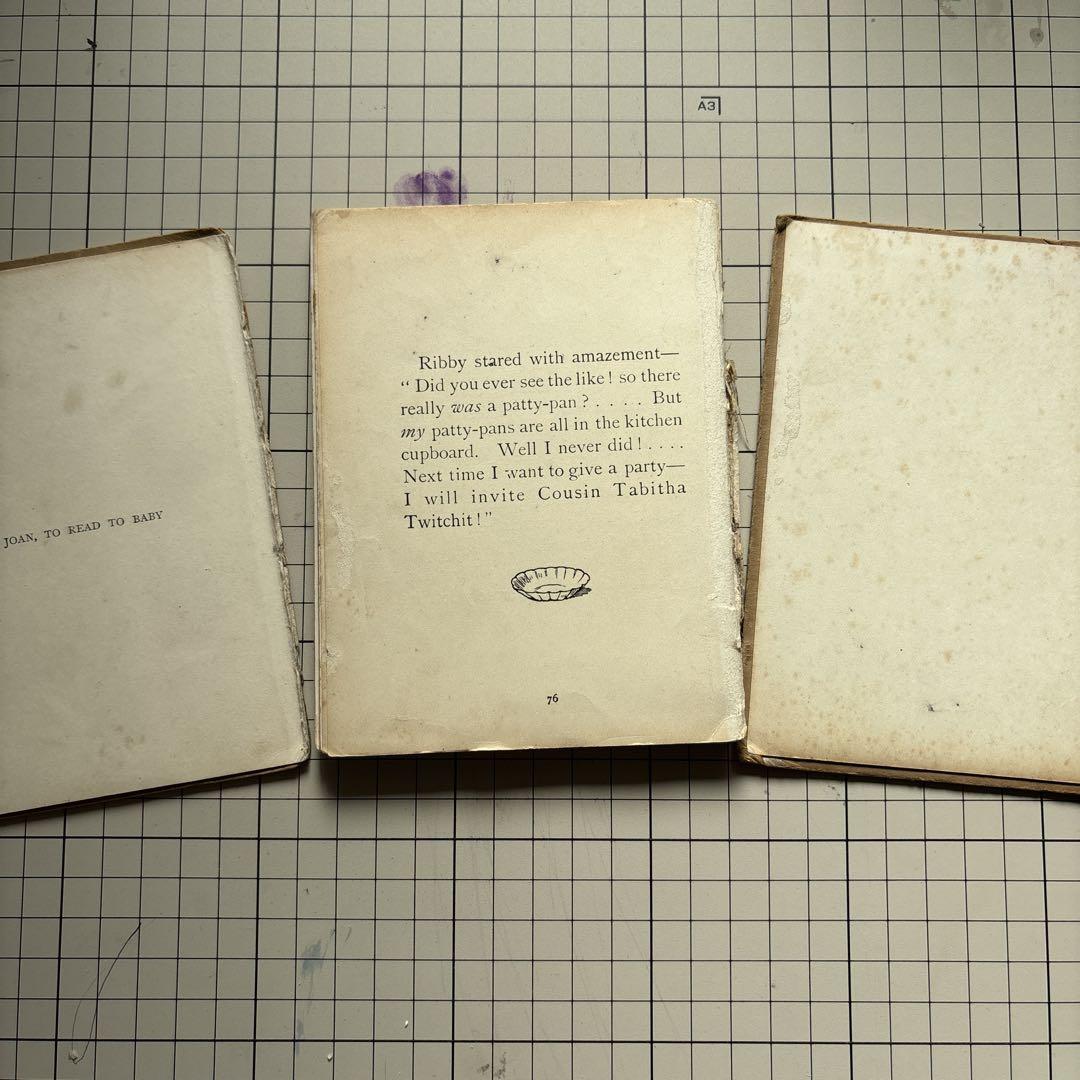 A3
JOAN, TO READ TO BABY
Ribby stared with amazement—
“ Did you ever see the like ! so there
really was a patty-pan ? . . . . But
my patty-pans are all in the kitchen
cupboard. Well I never did ! . . . .
Next time I want to give a party—
I will invite Cousin Tabitha
Twitchit ! ”
76